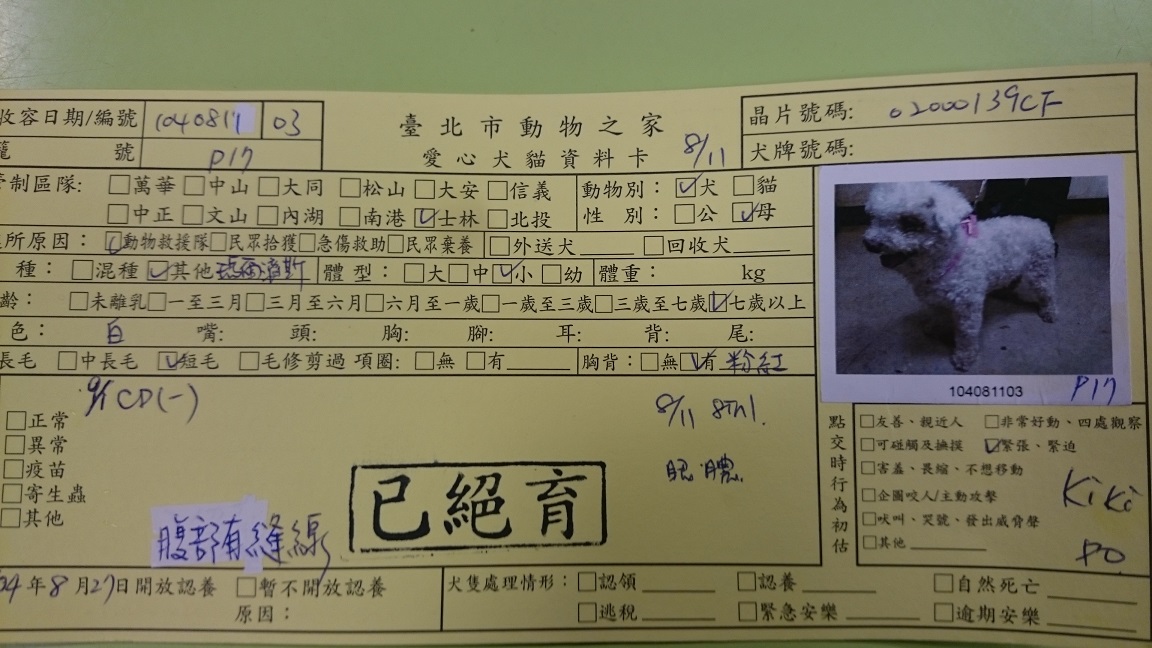 收容日期/編號 1040811 03
號 P17
臺北市動物之家
愛心犬貓資料卡 8/11
晶片號碼: 02000139CF
犬牌號碼:
管制區隊: □萬華□中山□大同 □松山□大安□信義
□中正□文山□內湖 □南港☑士林□北投
動物別: ☑犬 □貓
性 別: □公 ☑母
所原因: ☑動物救援隊□民眾拾獲□急傷救助□民眾棄養 □外送犬____ □回收犬____
種: □混種☑其他瑪爾濟斯 體 型: □大□中☑小□幼 體重: kg
齡: □未離乳□一至三月□三月至六月□六月至一歲□一歲至三歲□三歲至七歲☑七歲以上
色: 白 嘴: 頭: 胸: 腳: 耳: 背: 尾:
長毛 □中長毛 ☑短毛 □毛修剪過 項圈: □無 □有____ 胸背: □無☑有 粉紅
104081103 P17
CD(-)
8/11
□正常
□異常
□疫苗
□寄生蟲
□其他
腹部有縫線
已絕育
點交時行為初估
□友善、親近人 □非常好動、四處觀察
□可碰觸及撫摸 ☑緊張、緊迫
□害羞、畏縮、不想移動
□企圖咬人/主動攻擊
□吠叫、哭號、發出威脅聲
□其他____
KiKi
PO
年8月27日開放認養 □暫不開放認養
原因:
犬隻處理情形: □認領____ □認養____ □自然死亡____
□逃稅____ □緊急安樂____ □逾期安樂____